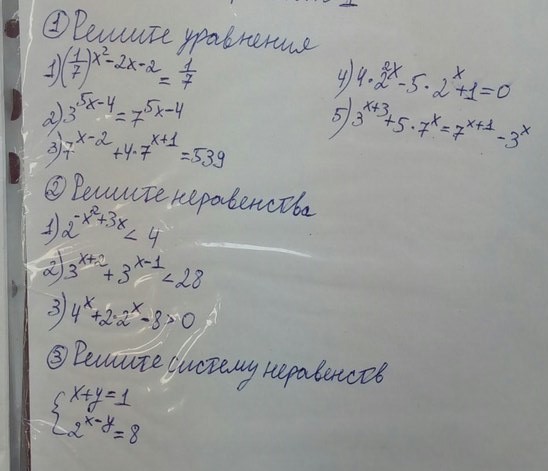 ① Решите уравнения
1) (1/7)^(x²-2x-2) = 1/7
2) 3^(5x-4) = 7^(5x-4)
3) 7^(x-2) + 4·7^(x+1) = 539
4) 4·2^(2x) - 5·2^x + 1 = 0
5) 3^(x+3) + 5·7^x = 7^(x+1) - 3^x
② Решите неравенства
1) 2^(-x²+3x) < 4
2) 3^(x+2) + 3^(x-1) < 28
3) 4^x + 2·2^x - 8 > 0
③ Решите систему неравенств
{ x+y=1
2^(x-y) = 8